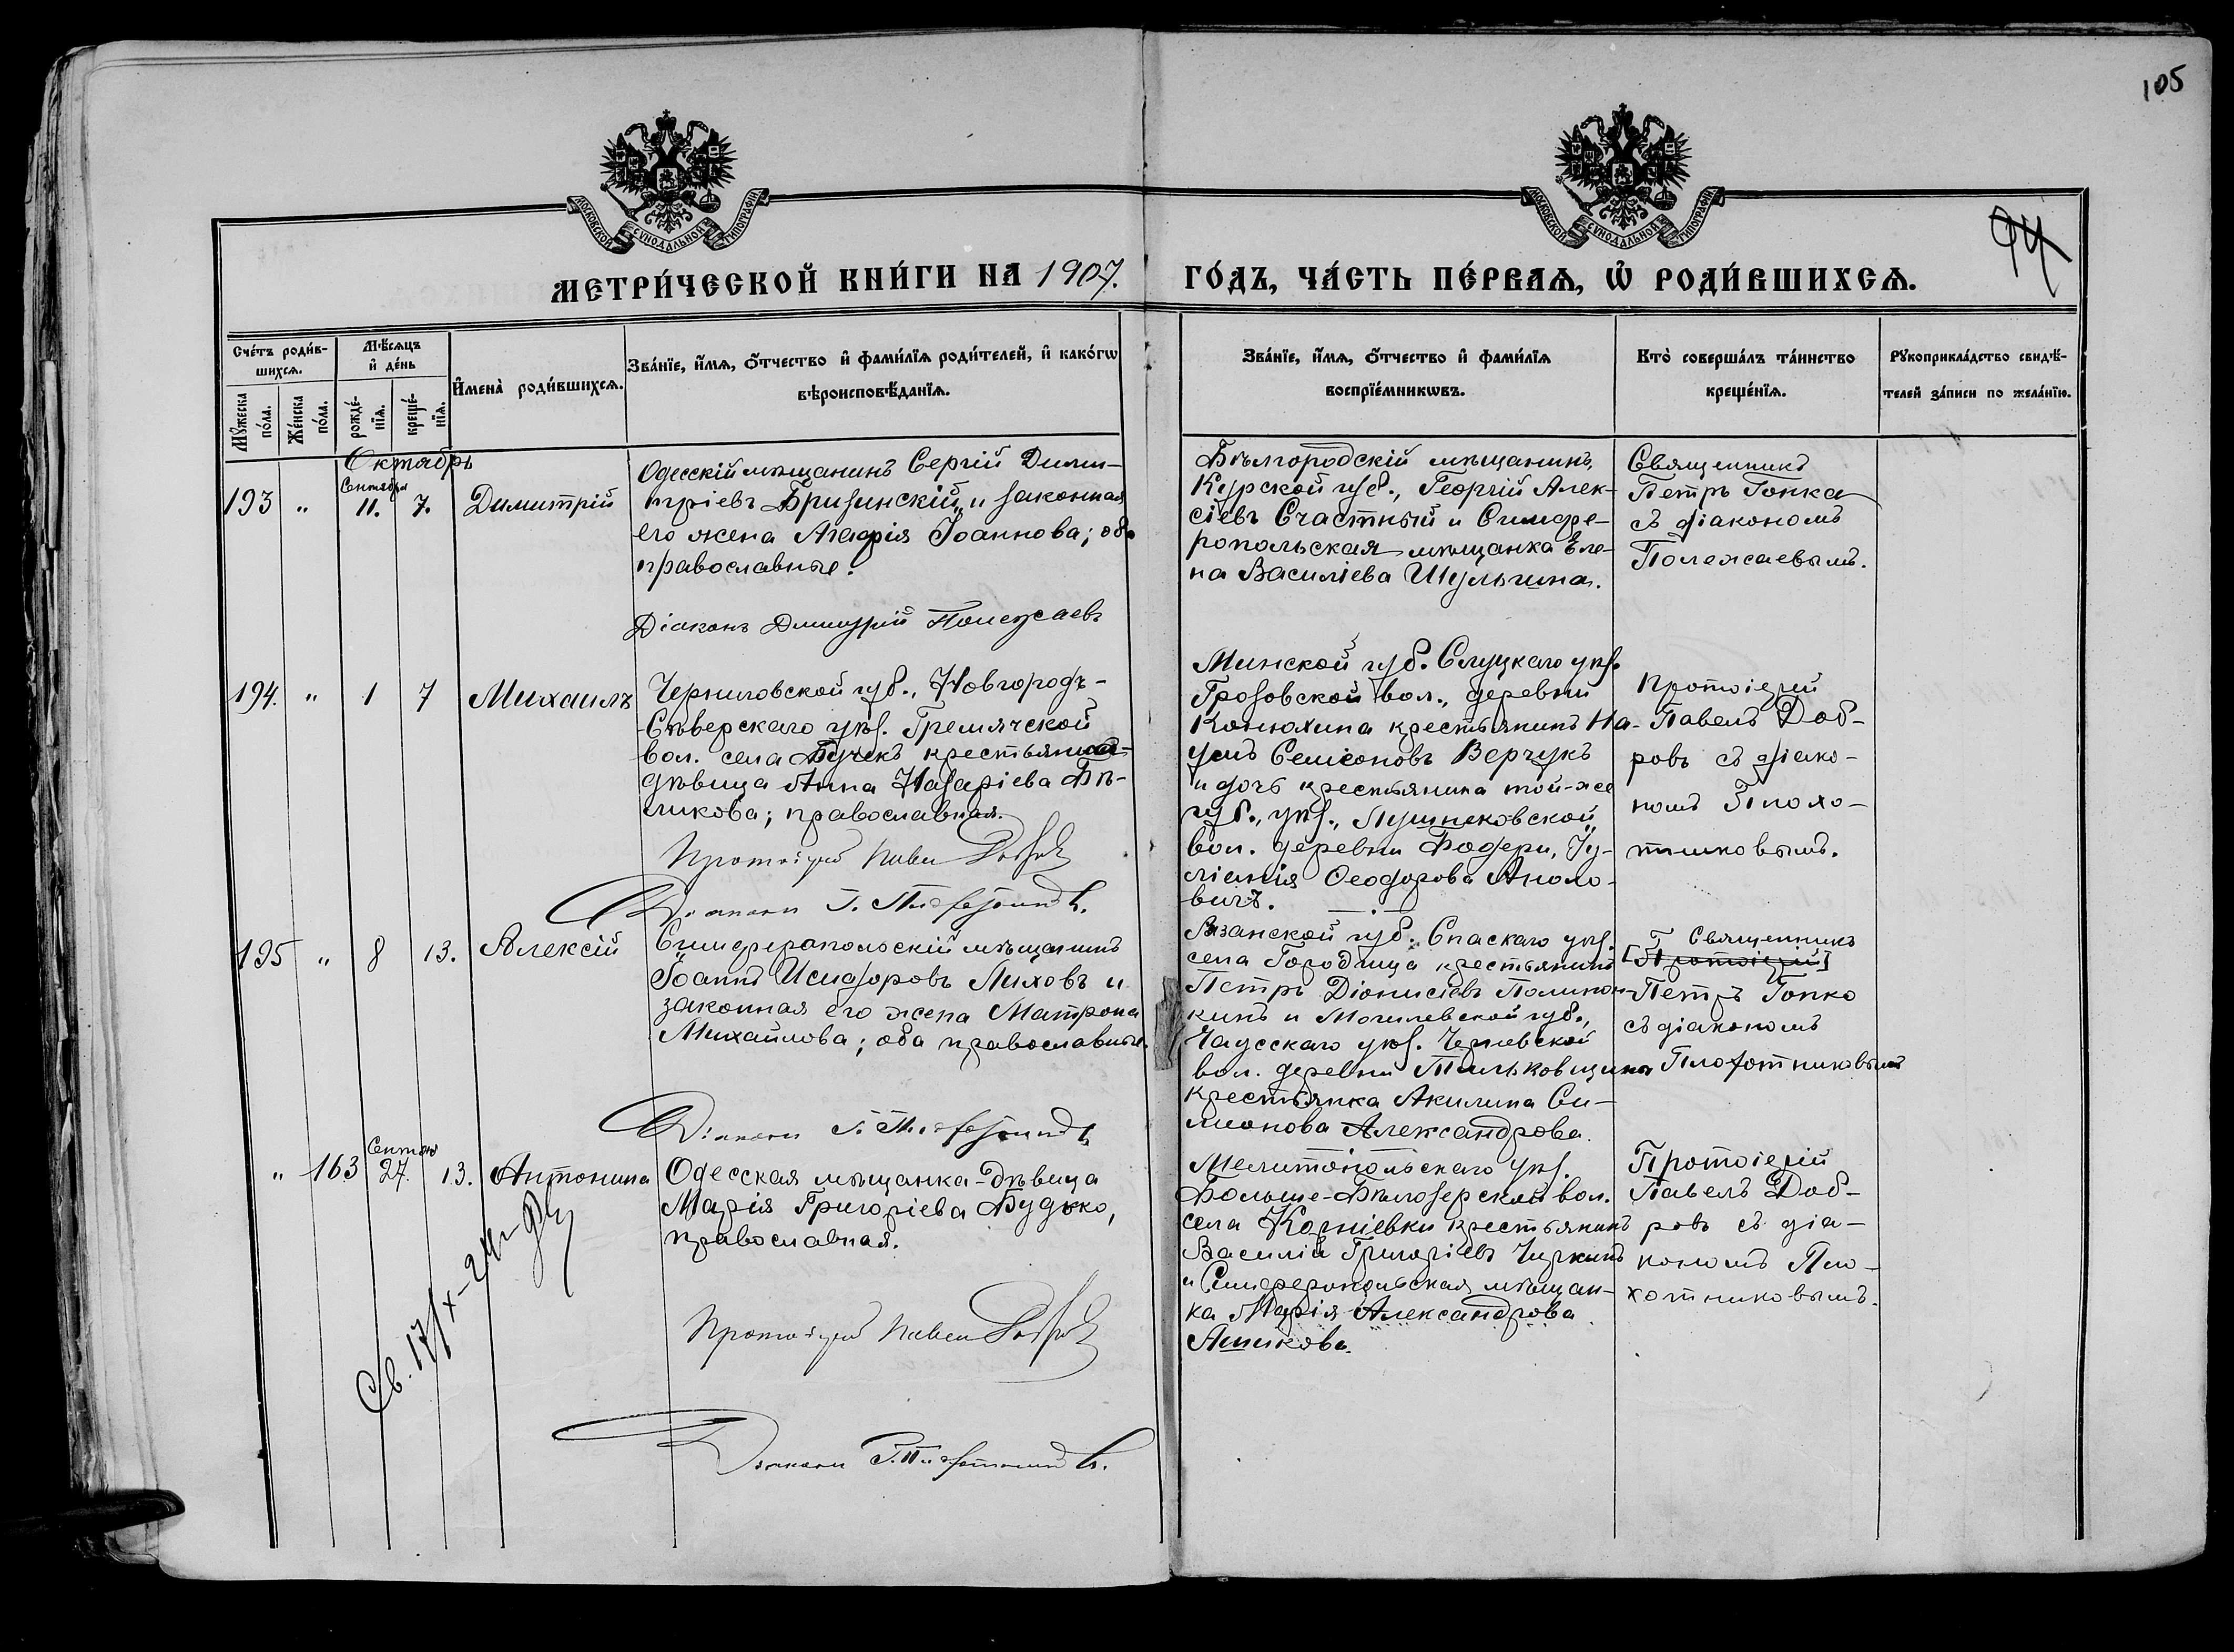 105
94
МОСКОВСКОЙ СѴНОДАЛЬНОЙ ТИПОГРАФІИ
МОСКОВСКОЙ СѴНОДАЛЬНОЙ ТИПОГРАФІИ
МЕТРИ́ЧЕСКОЙ КНИ́ГИ НА 1907. ГО́ДЪ, ЧА́СТЬ ПЕ́РВАѦ, Ѡ҆ РОДИ́ВШИХСѦ.
Сче́тъ роди́в-
шихсѧ.
Мꙋ́жеска по́ла.
Же́нска по́ла.
Мѣ́сѧцъ
и҆ де́нь
рожде́-
нїѧ.
креще́-
нїѧ.
И҆мена̀ роди́вшихсѧ.
Зва́нїе, и҆́мѧ, ѻ҆́тчество и҆ фами́лїѧ роди́телей, и҆ како́гѡ
вѣроисповѣ́данїѧ.
Зва́нїе, и҆́мѧ, ѻ҆́тчество и҆ фами́лїѧ
воспрїе́мникѡвъ.
Кто̀ соверша́лъ та́инство
креще́нїѧ.
Рꙋкоприкла́дство свидѣ́-
телей за́писи по жела́нїю.
Октябрь
193 " Сентября 11. 7. Димитрій
Одесскій мѣщанинъ Сергій Дими-
тріевъ Бризинскій и законная
его жена Агафія Іоаннова; оба
православные.
Діаконъ Димитрій Полежаевъ
Бѣлгородскій мѣщанинъ,
Курской губ., Георгій Алек-
сіевъ Счастный и Симфе-
ропольская мѣщанка Еле-
на Василіева Шульгина.
Священникъ
Петръ Гопка
съ діакономъ
Полежаевымъ.
194. " 1 7 Михаилъ
Черниговской губ., Новгородъ-
Сѣверскаго уѣз. Гремячской
вол. села Бучекъ крестьянка-
дѣвица Анна Назаріева Бѣ-
ликова; православная.
Протоіерей Павелъ Добровъ
Діаконъ
Минской губ. Слуцкаго уѣз.
Грозовской вол., деревни
Конюхина крестьянинъ На-
умъ Семіоновъ Верчукъ
и дочь крестьянина той-же
губ., уѣз.,
вол. деревни Бодери, Іу-
ліанія Ѳеодорова Аполо-
вичъ.
Протоіерей
Павелъ Доб-
ровъ съ діако-
номъ Плохо-
тниковымъ.
195 " 8 13. Алексій
Симферопольскій мѣщанинъ
Іоаннъ Исидоровъ Лиховъ и
законная его жена Матрона
Михаилова; оба православные.
Діаконъ
Рязанской губ. Спаскаго уѣз.
села Городища крестьянинъ
Петръ Діонисіевъ
кинъ и Могилевской губ.,
Чаусскаго уѣз. Черневской
вол. деревни Тильковщина
крестьянка Акилина Си-
меонова Александрова.
Священникъ
[Протоіерей]
Петръ Гопко
съ діакономъ
Плохотниковымъ
" 163 Сентяб 27. 13. Антонина
Одесская мѣщанка-дѣвица
Марія Григоріева Будько,
православная.
Протоіерей Павелъ Добровъ
Діаконъ
Мелитопольскаго уѣз.
Больше-Бѣлозерской вол.
села Корніевки крестьянинъ
Василій Григоріевъ Чиркинъ
и Симферопольская мѣщан-
ка Марія Александрова
Ашикова.
Протоіерей
Павелъ Доб-
ровъ съ діа-
кономъ Пло-
хотниковымъ.